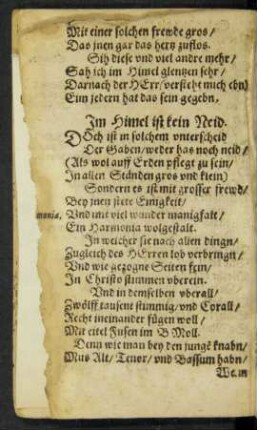 Mit einer solchen frewde gros /
Das jnen gar das hertz zuflos.
Sih diese vnd viel andre mehr /
Sah ich im Himel glentzen sehr /
Darnach der HErr / versteht mich ebn)
Eim jedern hat das sein gegebn.
Im Himel ist kein Neid.
Doch ist in solchem vnterscheid
Der Gaben / weder has noch neid /
(Als wol auff Erden pflegt zu sein /
In allen Ständen gros vnd klein)
Sondern es ist mit grosser frewd /
Bey jnen stete Einigkeit /
monia. Vnd mit viel wunder manigfalt /
Ein Harmonia wolgestalt.
In welcher sie nach allen dingn /
Zugleich des HErren lob verbringn /
Vnd wie gezogne Seiten fein /
In Christo stimmen vberein.
Vnd in demselben vberall /
Zwölff tausent stimmig / vnd Corall /
Recht ineinander fügen woll /
Mit eitel Fusen im B Moll.
Denn wie man bey den jungē knabn /
Mus Alt / Tenor / vnd Bassum habn /